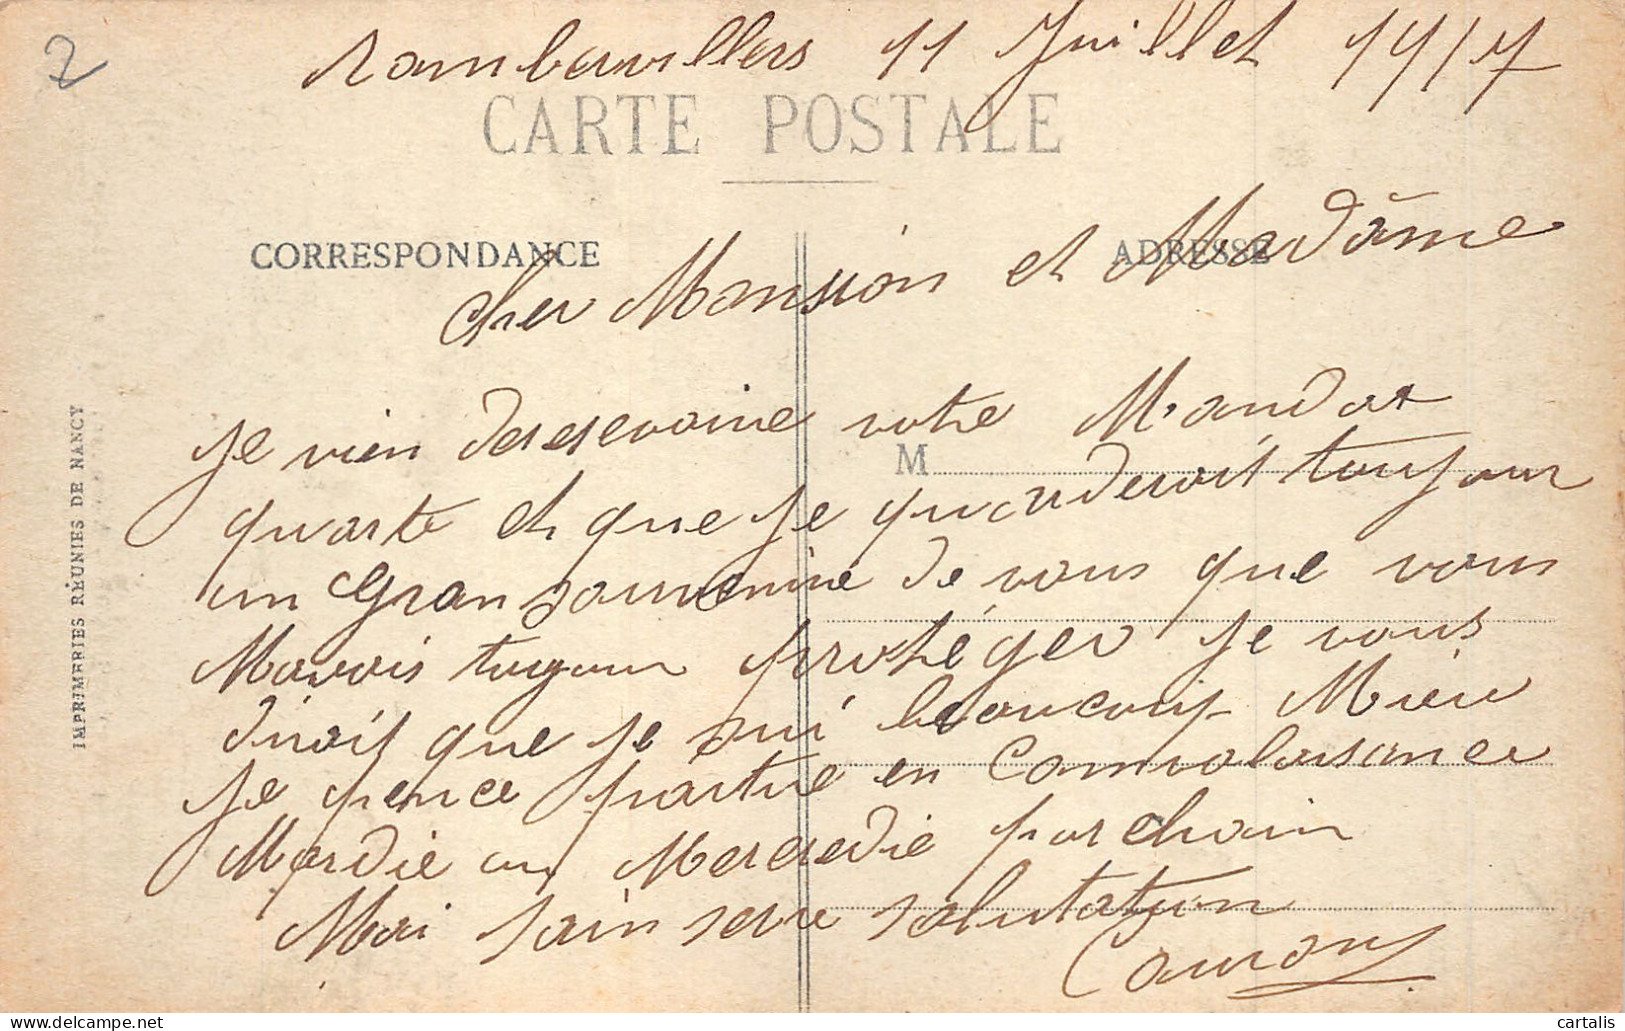 2
rambervillers 11 Juillet 1917
CARTE POSTALE
CORRESPONDANCE
ADRESSE
Cher Monsion et Madâme
Je vien de votre Mandat
M
quarte et que je toujour
un Gran souvenire de vous que vous
Mavais toujour protéger je vous
dirait que je sui beaucoup Mieu
je pence partire en Convalaisance
Mardie ou Mercredie porchain
Mai sainsere salutation
IMPRIMERIES RÉUNIES DE NANCY
cartalis